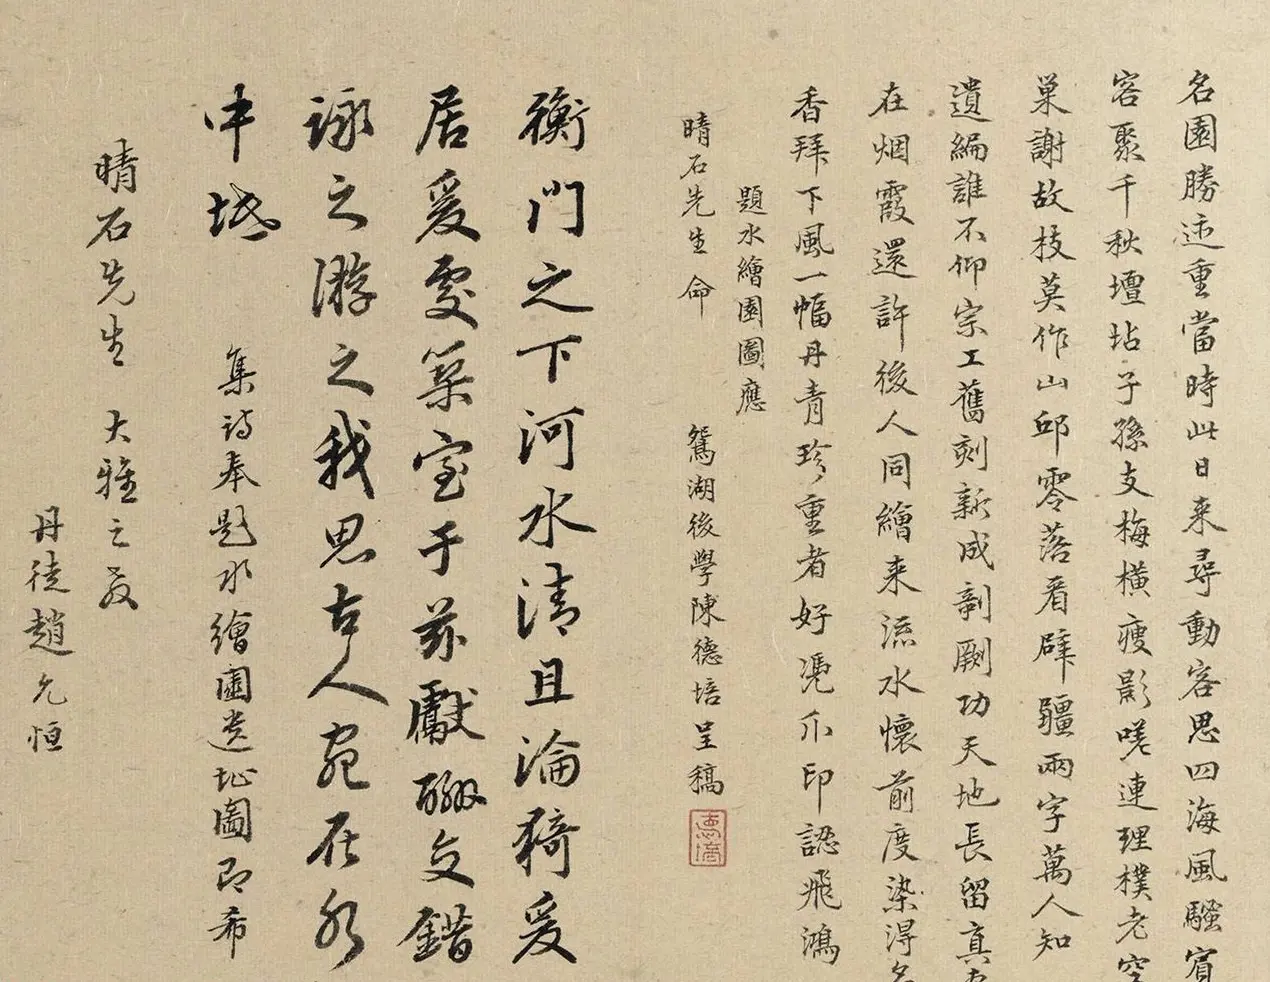 名園勝迹重當時此日来尋動客思四海風騷賓
客聚千秋壇坫子孫支梅橫瘦影嗟連理樸老空
巢謝故枝莫作山邱零落看辟疆兩字萬人知
遺編誰不仰宗工舊刻新成剞劂功天地長留真
在烟霞還許後人同繪来流水懷前度染得名
香拜下風一幅丹青珍重者好憑爪印認飛鴻
題水繪園圖應
晴石先生命
鴛湖後學陳德培呈稿
衡門之下河水清且淪猗爰
居爰處築室于茲獻酬交錯
詠之游之我思古人宛在水
中坻
集詩奉題水繪園遺址圖即希
晴石先生大雅之教
丹徒趙允恒